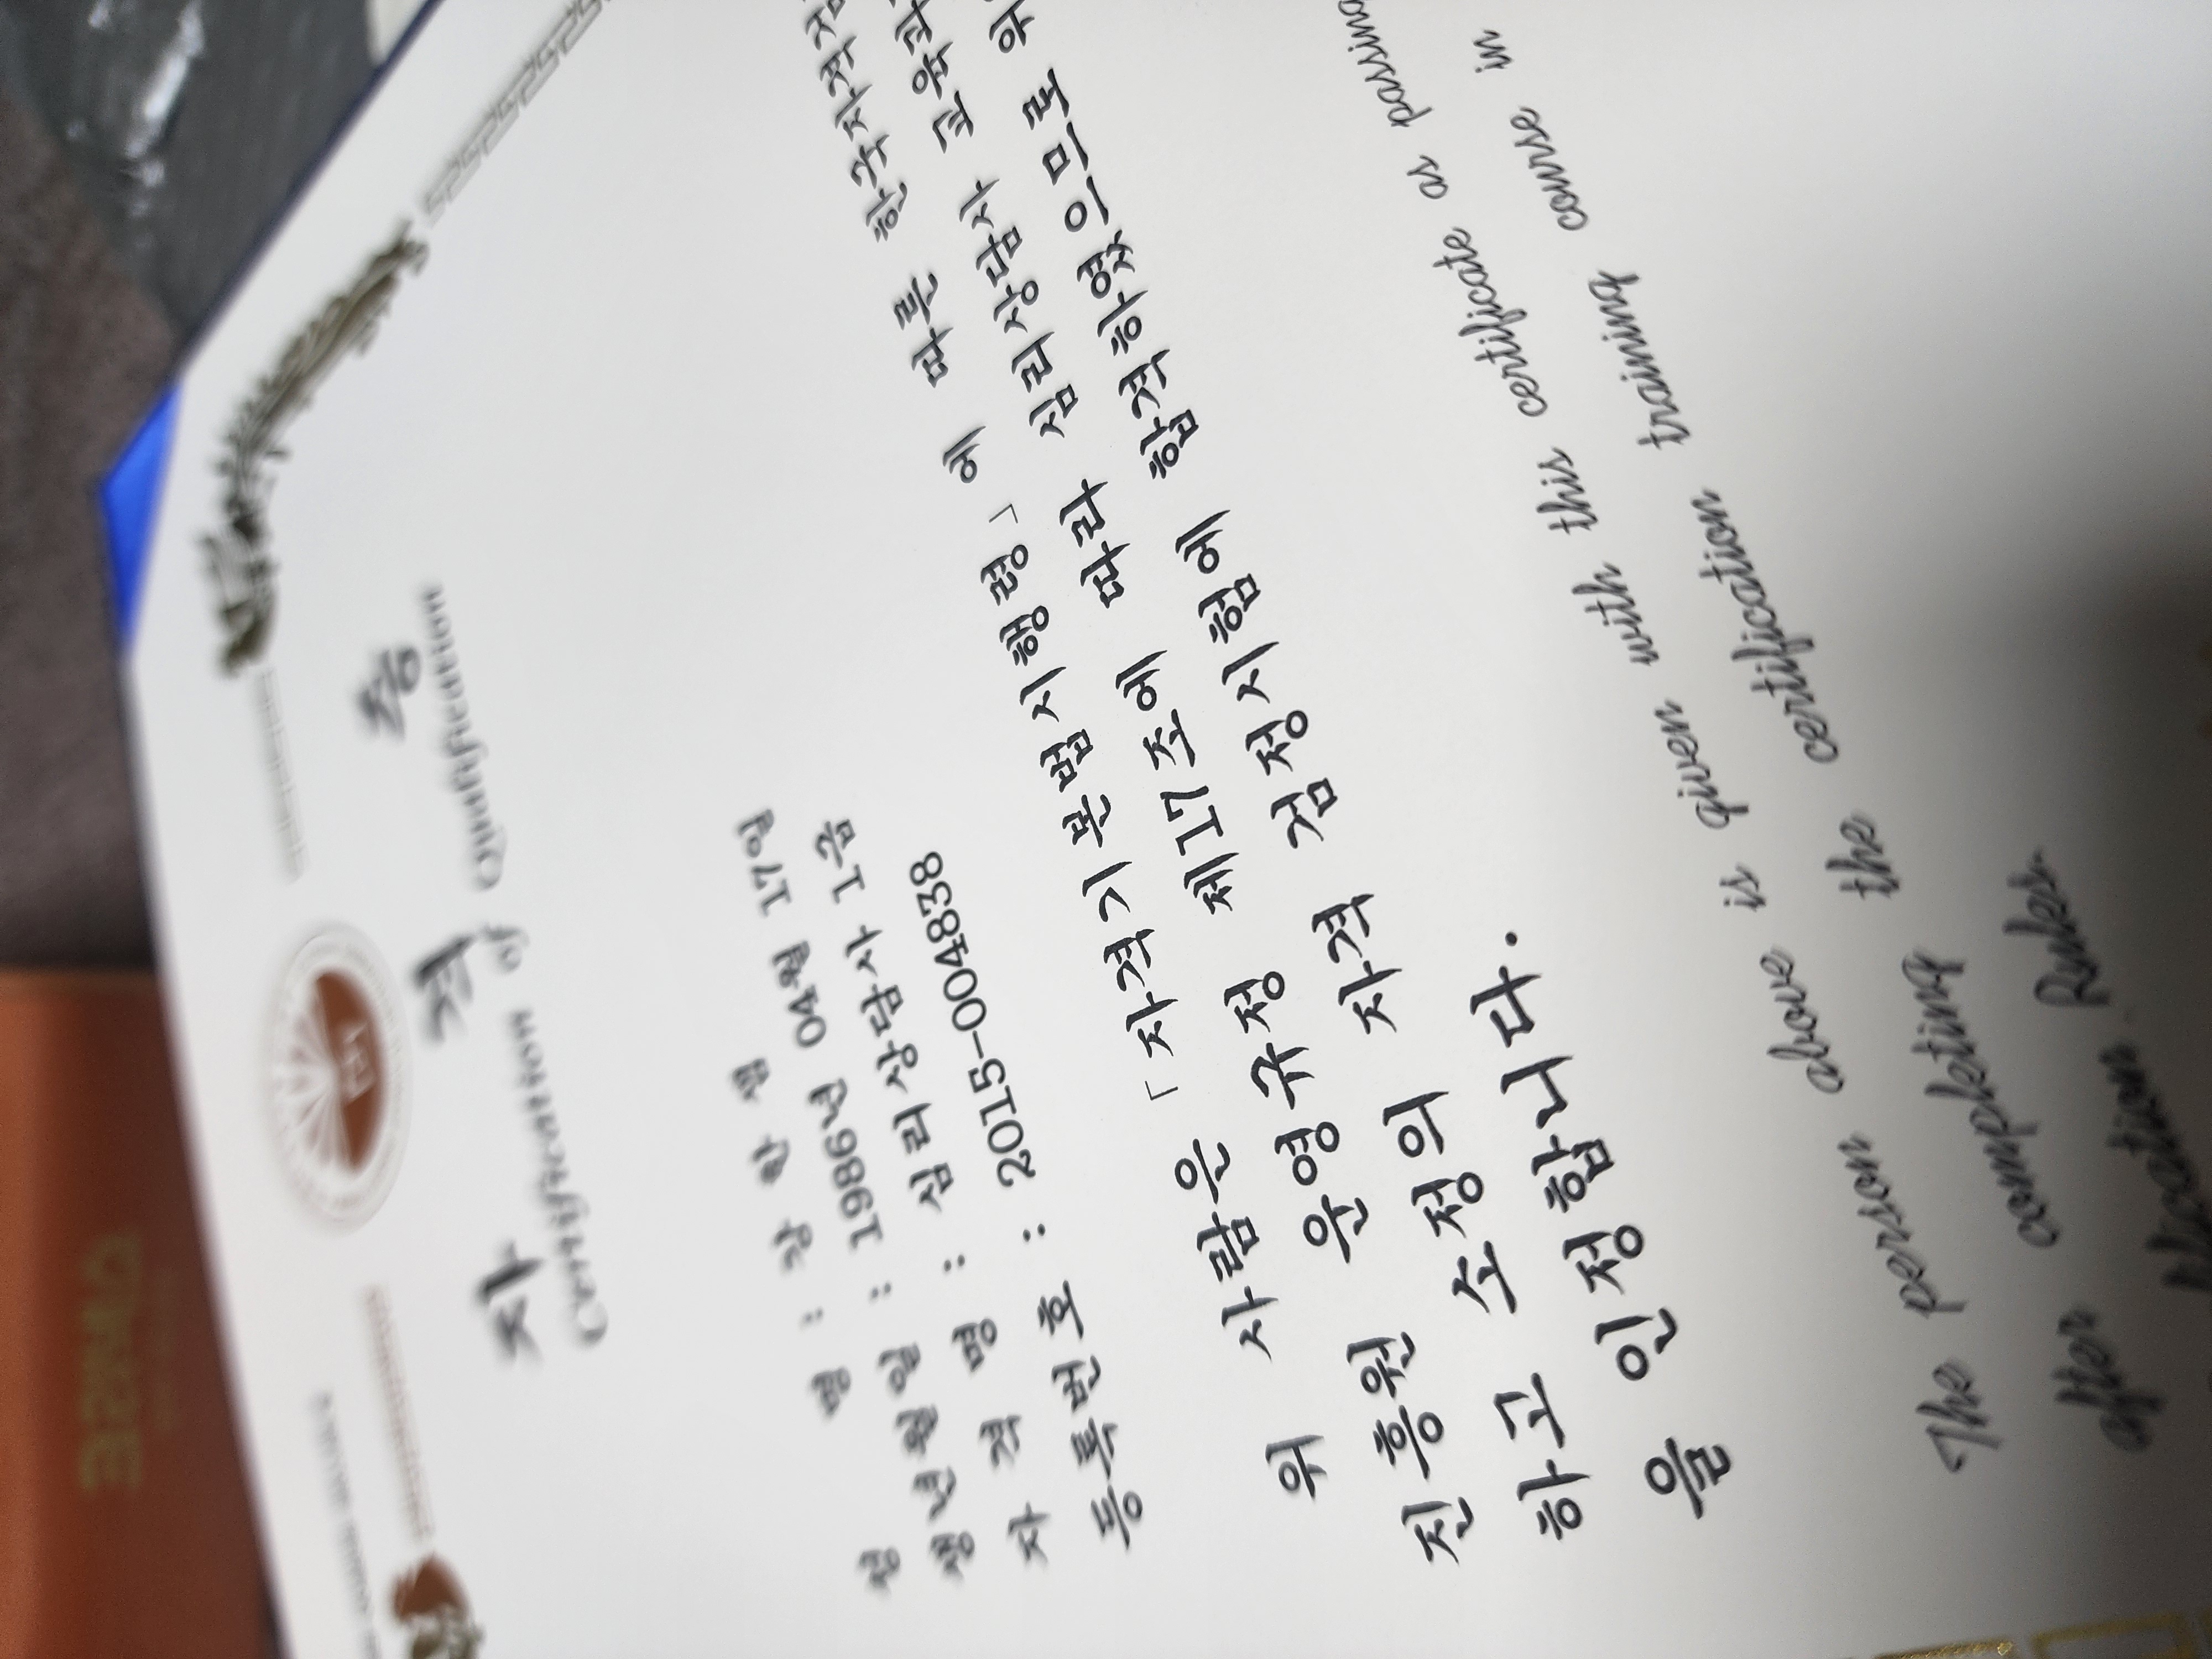 자 격 증
Certification of Qualification
성 명 : 장 한 샘
생년월일 : 1986년 04월 17일
자 격 명 : 심리상담사 1급
등록번호 : 2015-004838
위 사람은 「자격기본법시행령」에 따른 한국자격검
진흥원 운영규정 제17조에 따라 심리상담사 교육과
하고 소정의 자격 검정시험에 합격하였으므로 위
을 인정합니다.
The person above is given with this certificate as passing
after completing the certification training course in
Rules